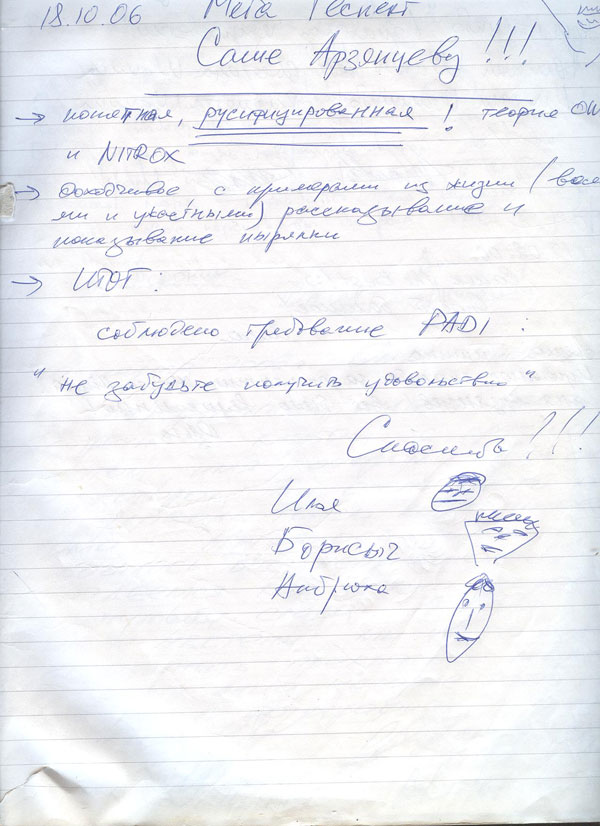 18.10.06 Мега Респект
Саше Арзянцеву!!!
→ понятная, русифицированная! теория OW
и NITROX
→ Доходчивое с примерами из жизни (
ми и ) рассказывание и
показывание нырялки
→ ИТОГ:
соблюдено требование PADI:
"не забудьте получить удовольствие"
Спасибо!!!
Илья
Борисыч